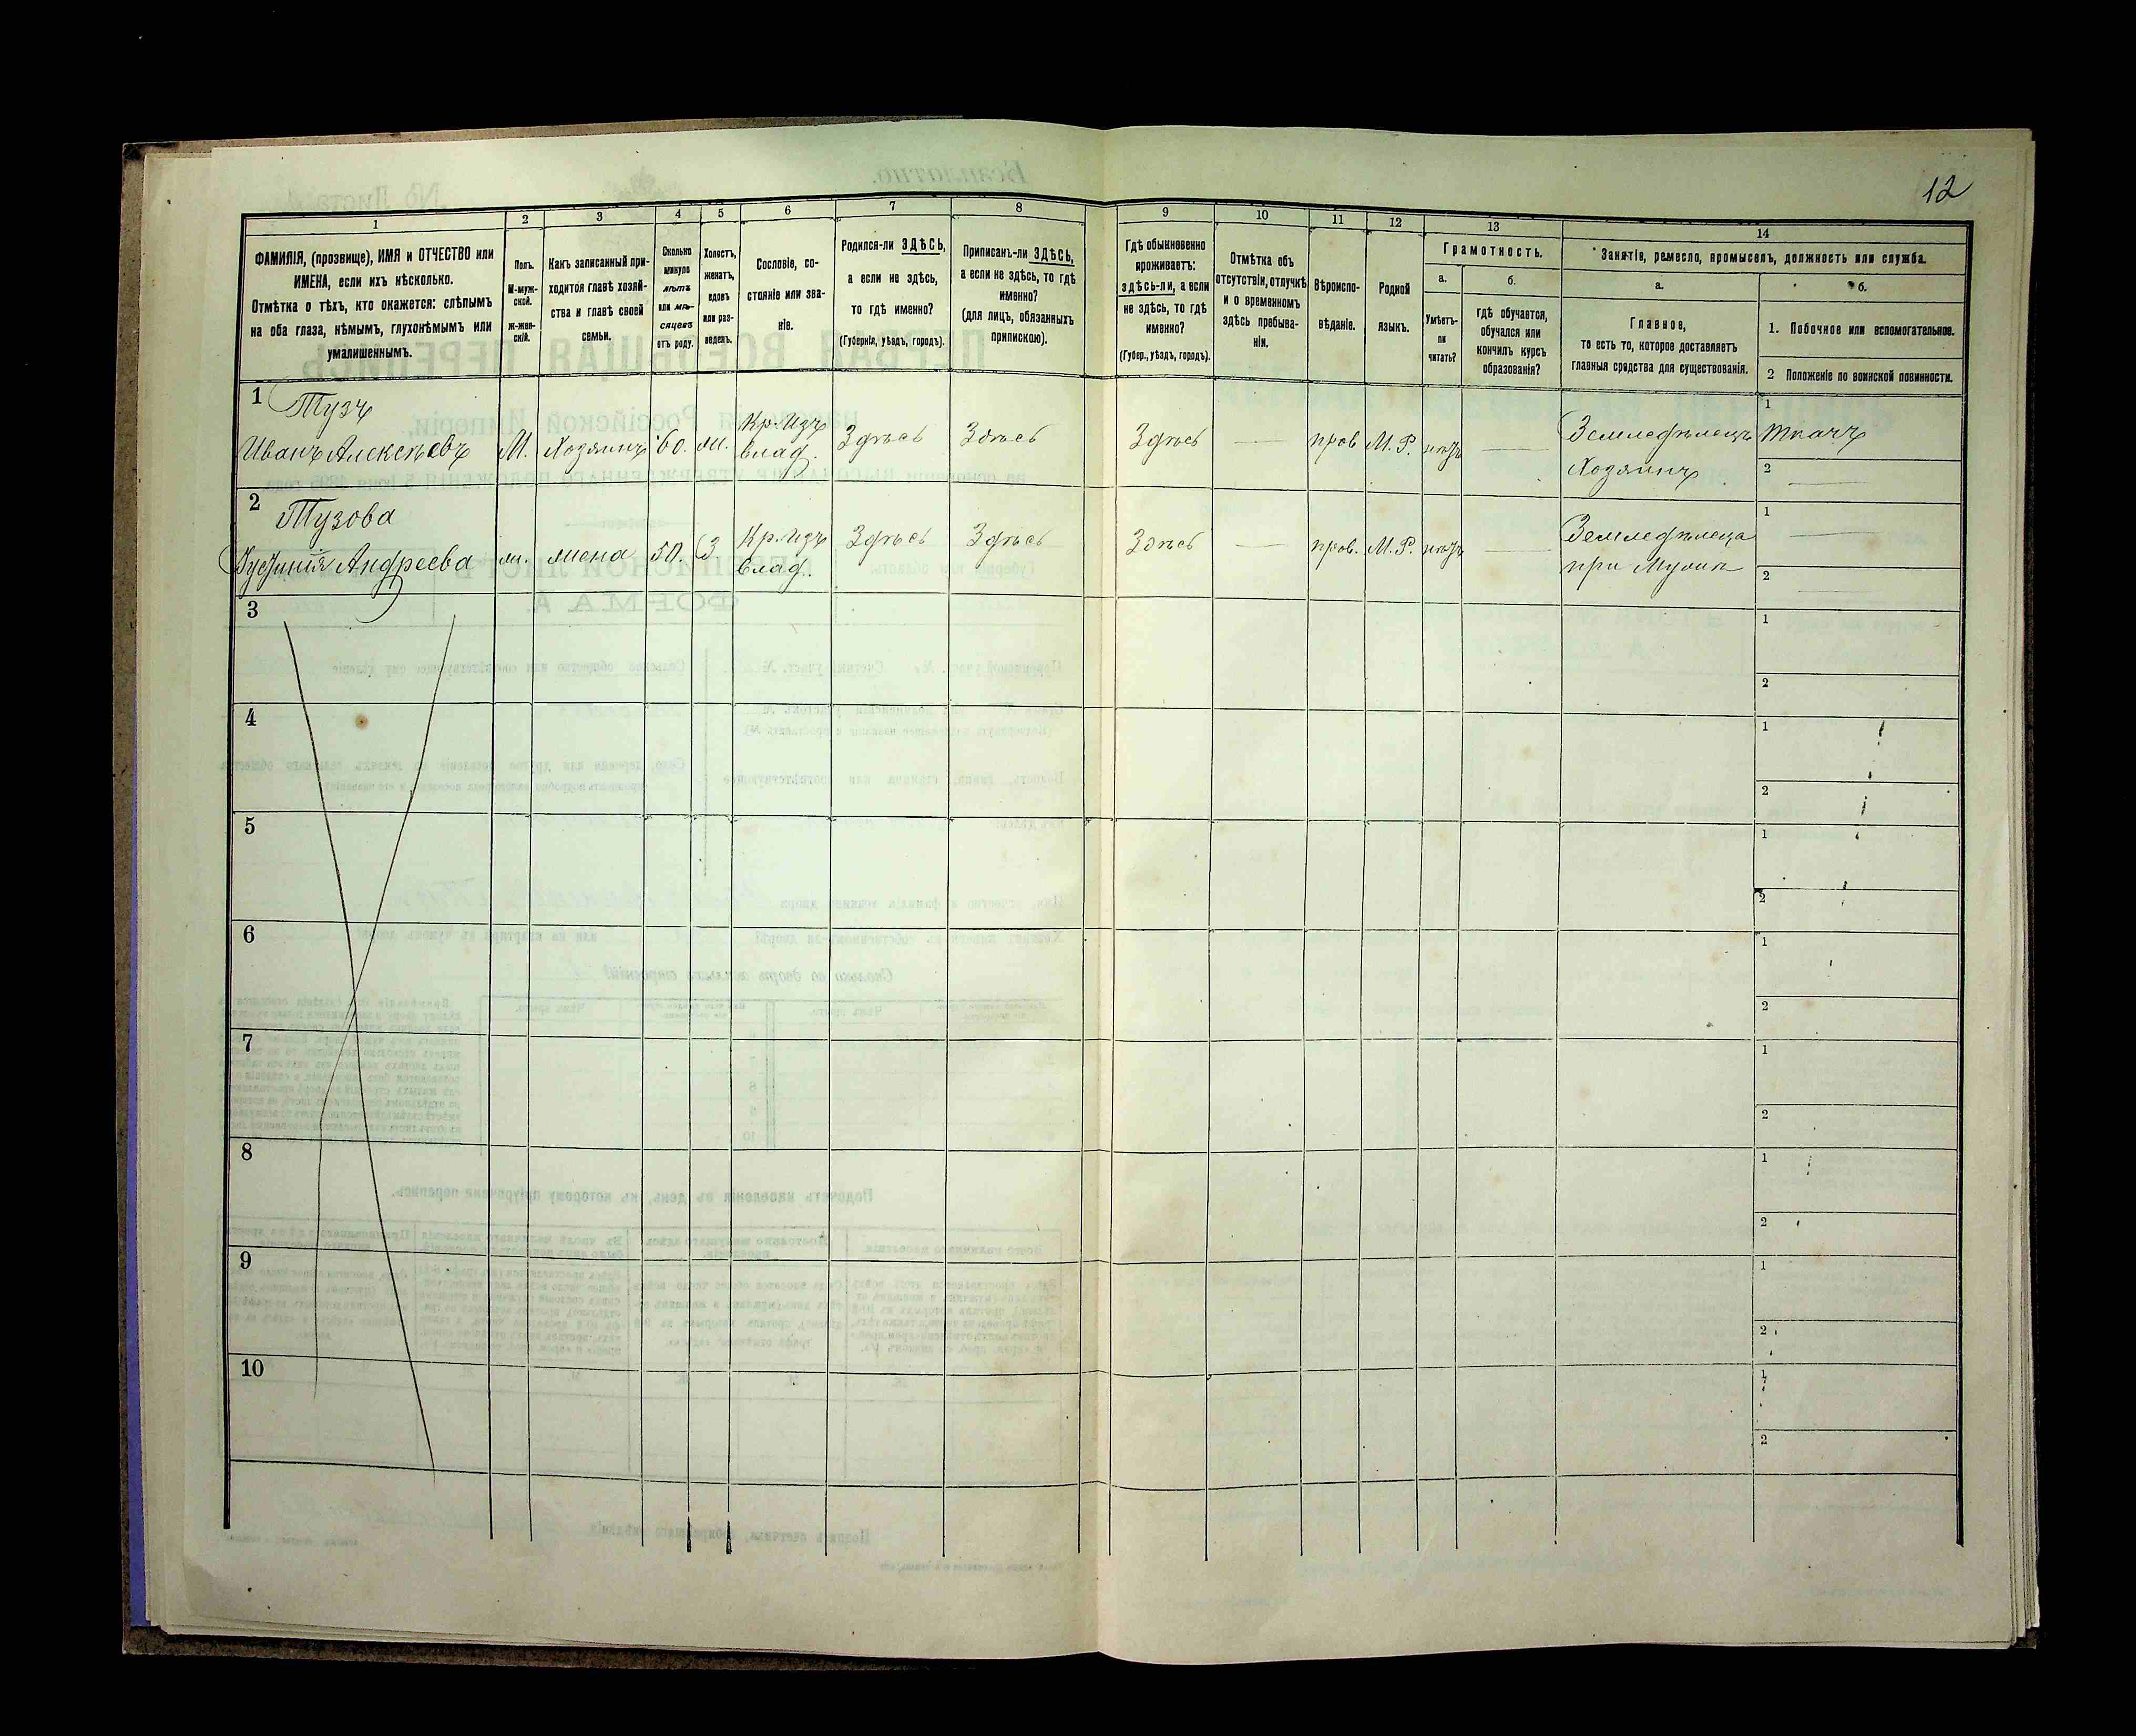 12
1
2
3
4
5
6
7
8
9
10
11
12
13
14
ФАМИЛІЯ, (прозвище), ИМЯ и ОТЧЕСТВО или
ИМЕНА, если ихъ нѣсколько.
Отмѣтка о тѣхъ, кто окажется: слѣпымъ
на оба глаза, нѣмымъ, глухонѣмымъ или
умалишеннымъ.
Полъ.
М-муж-
ской.
ж-жен-
скій.
Какъ записанный при-
ходится главѣ хозяй-
ства и главѣ своей
семьи.
Сколько
минуло
лѣтъ
или мѣ-
сяцевъ
отъ роду.
Холостъ,
женатъ,
вдовъ
или раз-
веденъ.
Сословіе, со-
стояніе или зва-
ніе.
Родился-ли ЗДѢСЬ,
а если не здѣсь,
то гдѣ именно?
(Губернія, уѣздъ, городъ).
Приписанъ-ли ЗДѢСЬ,
а если не здѣсь, то гдѣ
именно?
(для лицъ, обязанныхъ
припискою).
Гдѣ обыкновенно
проживаетъ:
здѣсь-ли, а если
не здѣсь, то гдѣ
именно?
(Губер., уѣздъ, городъ).
Отмѣтка объ
отсутствіи, отлучкѣ
и о временномъ
здѣсь пребыва-
ніи.
Вѣроиспо-
вѣданіе.
Родной
языкъ.
Грамотность.
а.
Умѣетъ-
ли
читать?
б.
гдѣ обучается,
обучался или
кончилъ курсъ
образованія?
Занятіе, ремесло, промыселъ, должность или служба.
а.
Главное,
то есть то, которое доставляетъ
главныя средства для существованія.
б.
1. Побочное или вспомогательное.
2 Положеніе по воинской повинности.
1
Тузъ
Иванъ Алексѣевъ
М.
Хозяинъ
60.
ж.
Кр. изъ
влад.
Здѣсь
Здѣсь
Здѣсь
—
прав
М. Р.
нѣтъ
—
Земледѣлецъ
Хозяинъ
1
ткачъ
2
—
2
Тузова
Андреева
ж.
жена
50.
З.
Кр. изъ
влад.
Здѣсь
Здѣсь
Здѣсь
—
прав.
М. Р.
нѣтъ
—
Земледѣлеца
при Мужѣ
1
—
2
—
3
1
2
4
1
2
5
1
2
6
1
2
7
1
2
8
1
2
9
1
2
10
1
2